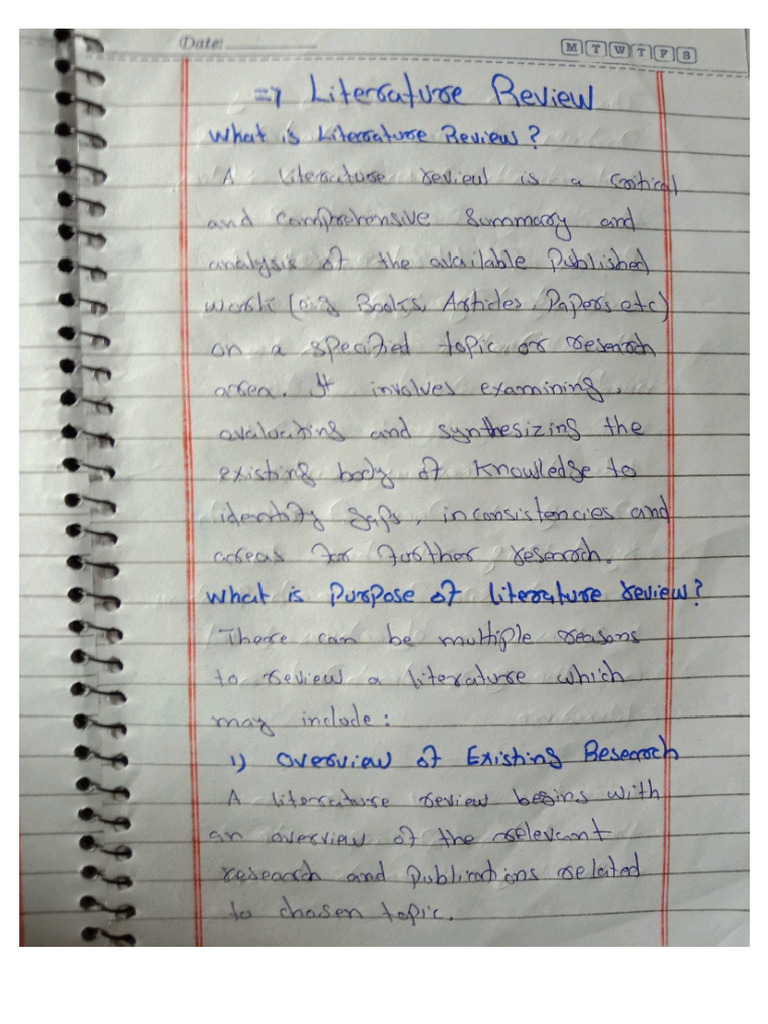 Date:
M T W T F S
=> Literature Review
What is Literature Review?
A literature review is a critical
and comprehensive summary and
analysis of the available published
work (e.g Books, Articles, Papers etc)
on a specified topic or research
area. It involves examining,
evaluating and synthesizing the
existing body of knowledge to
identify gaps, inconsistencies and
areas for further research.
What is Purpose of literature review?
There can be multiple reasons
to review a literature which
may include:
1) Overview of Existing Research
A literature review begins with
an overview of the relevant
research and publications related
to chosen topic.